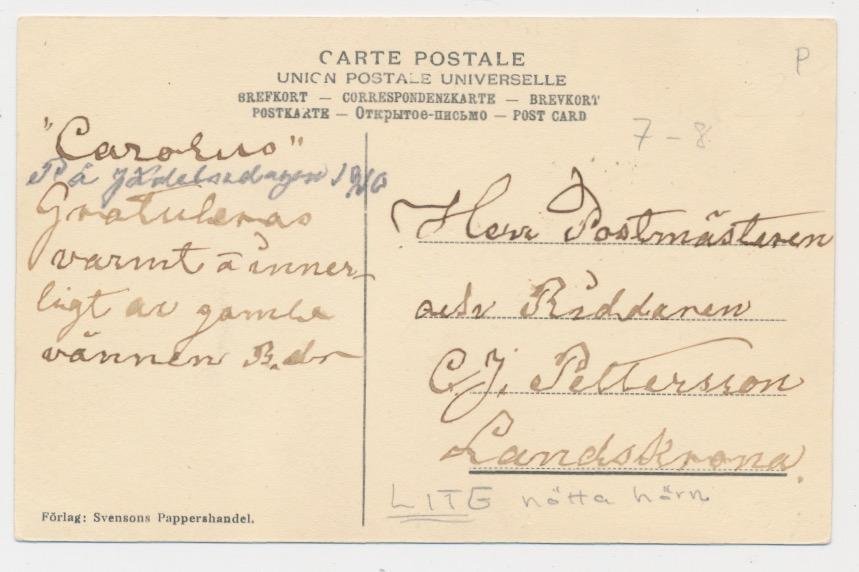 CARTE POSTALE
UNION POSTALE UNIVERSELLE
BREFKORT — CORRESPONDENZKARTE — BREVKORT
POSTKARTE — Открытое-письмо — POST CARD
P
7-8
"Carolus"
På födelsedagen 1910
Gratuleras
varmt å inner-
ligt av gamle
vännen
Herr Postmästaren
och Riddaren
C. J. Pettersson
Landskrona.
LITE nötta hörn
Förlag: Svensons Pappershandel.